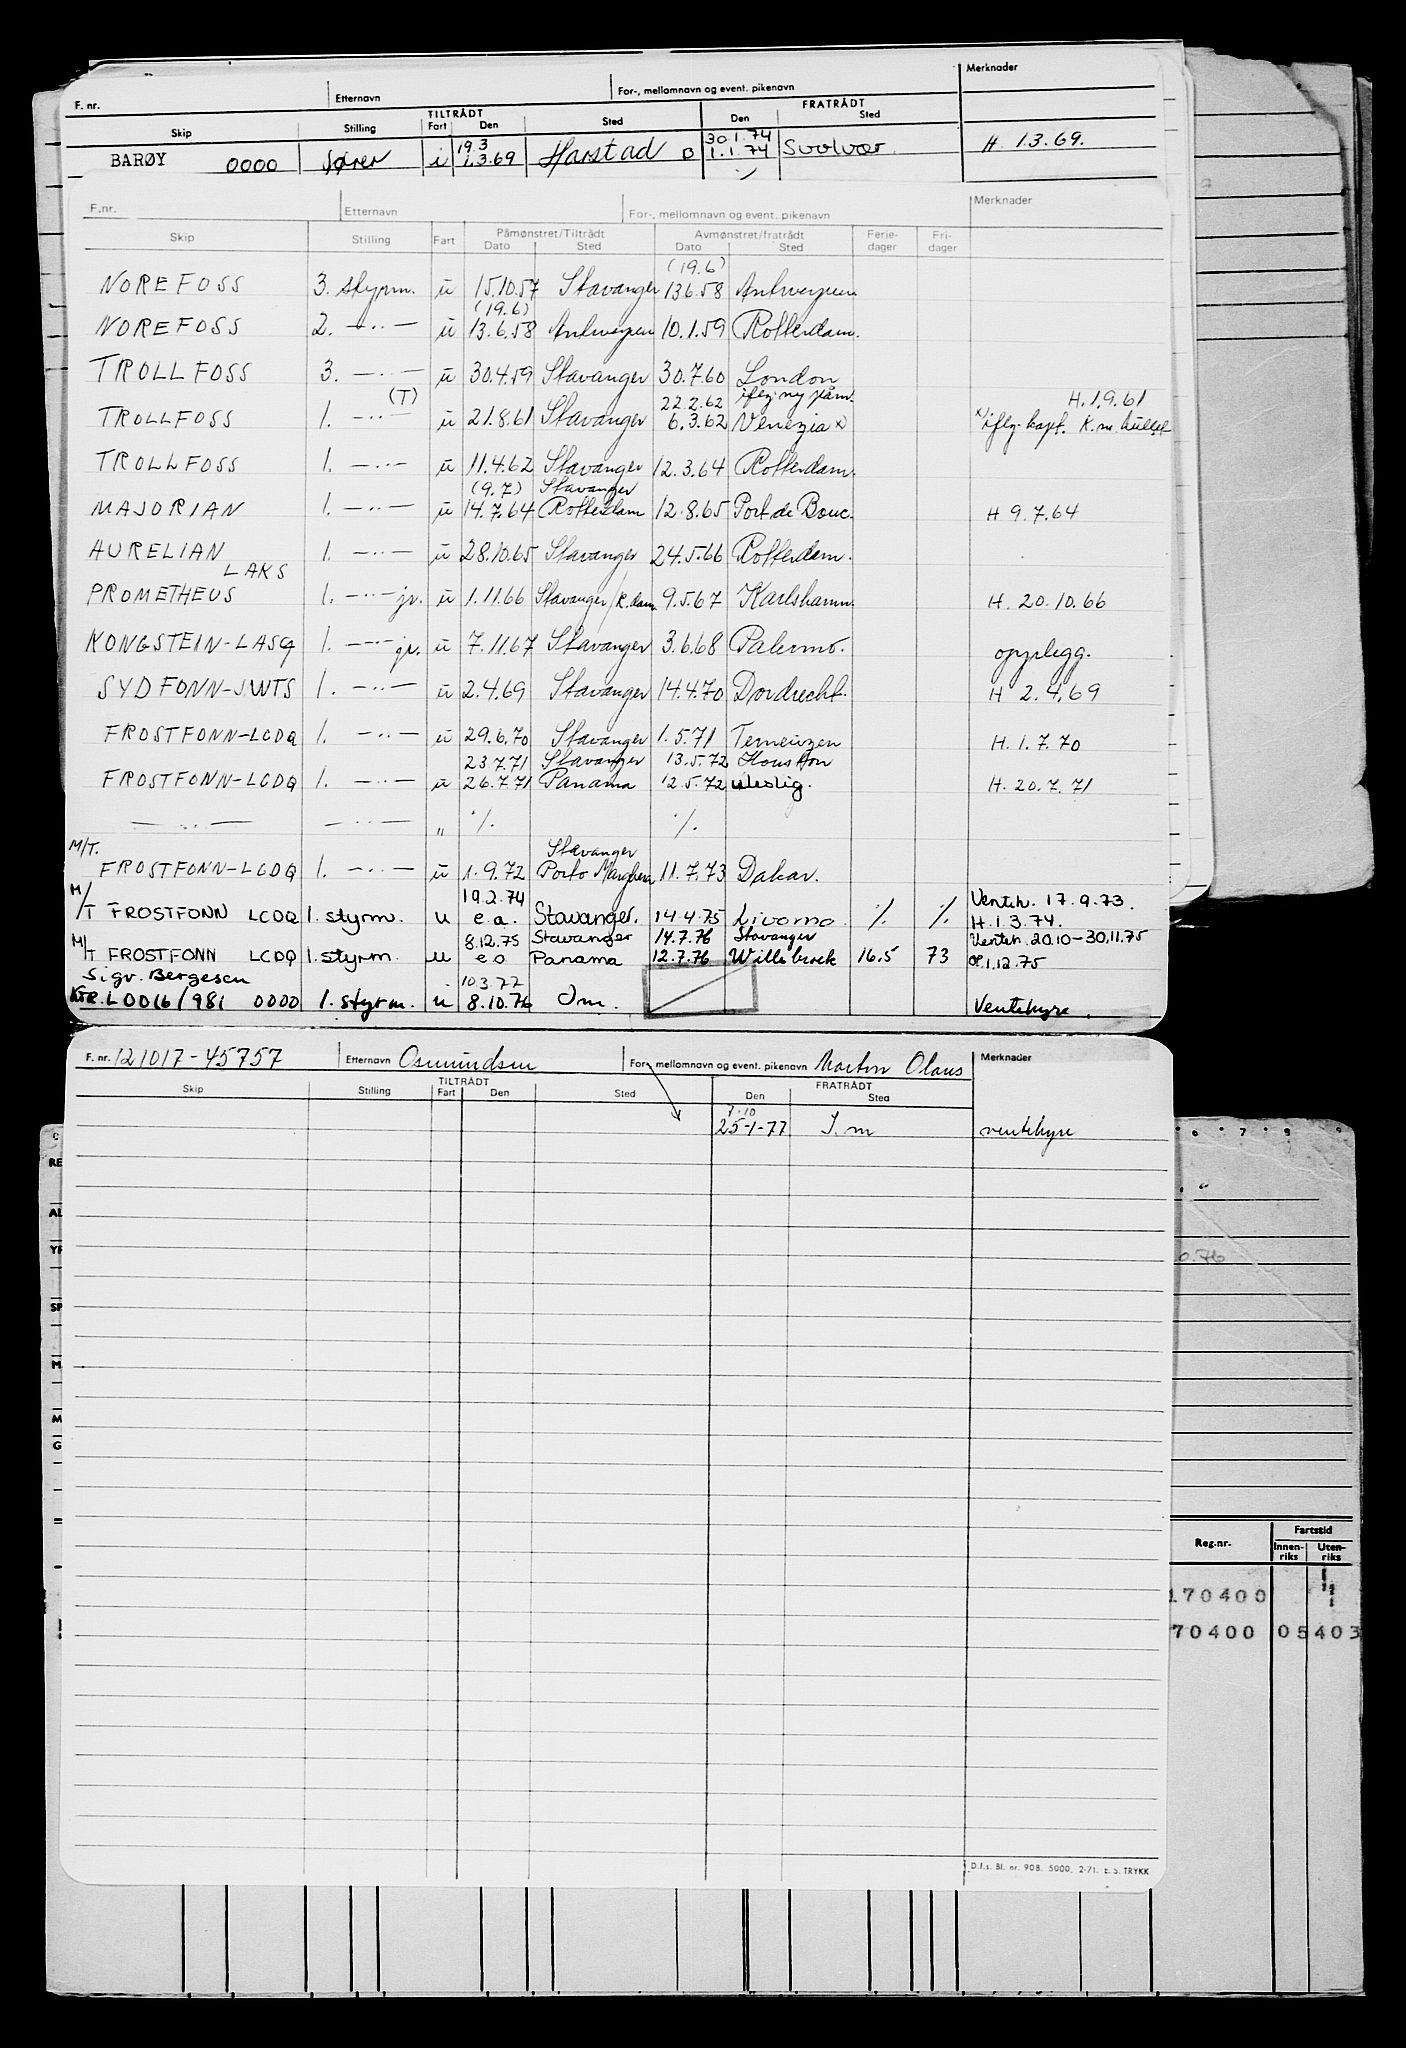 F. nr. Etternavn For-, mellomnavn og event. pikenavn Merknader
TILTRÅDT FRATRÅDT
Skip Stilling Fart Den Sted Den Sted
19.3 30.1.74
BARØY 0000 fører i 1.3.69 Harstad o 1.1.74 Svolvær H 1.3.69.
F.nr. Etternavn For-, mellomnavn og event. pikenavn Merknader
Påmønstret/Tiltrådt Avmønstret/fratrådt Ferie- Fri-
Skip Stilling Fart Dato Sted Dato Sted dager dager
(19.6)
NOREFOSS 3. styrm. u 15.10.57 Stavanger 13.6.58 Antwerpen
(19.6)
NOREFOSS 2. —··— u 13.6.58 Antwerpen 10.1.59 Rotterdam.
TROLLFOSS 3. —··— u 30.4.59 Stavanger 30.7.60 London
(T) 22.2.62 iflg. ny påm. H.1.9.61
TROLLFOSS 1. —··— u 21.8.61 Stavanger 6.3.62 Venezia x) x) iflg. kapt. K.m.
TROLLFOSS 1. —··— u 11.4.62 Stavanger 12.3.64 Rotterdam.
(9.7) Stavanger
MAJORIAN 1. —··— u 14.7.64 Rotterdam 12.8.65 Port de Bouc. H 9.7.64
AURELIAN 1. —··— u 28.10.65 Stavanger 24.5.66 Rotterdam.
LAKS
PROMETHEUS 1. —··— jr. u 1.11.66 Stavanger/R.dam 9.5.67 Karlshamn. H. 20.10.66
KONGSTEIN-LASQ 1. —··— jr. u 7.11.67 Stavanger 3.6.68 Palermo. opplegg.
SYDFONN-JWTS 1. —··— u 2.4.69 Stavanger 14.4.70 Dordrecht. H 2.4.69
FROSTFONN-LCDQ 1. —··— u 29.6.70 Stavanger 1.5.71 Terneuzen H.1.7.70
23.7.71 Stavanger 13.5.72 Houston
FROSTFONN-LCDQ 1. —··— u 26.7.71 Panama 12.5.72 uleslig. H. 20.7.71
—··— —··— " ·/. ·/.
M/T. Stavanger
FROSTFONN-LCDQ 1. —··— u 1.9.72 Porto Marghera 11.7.73 Dakar.
19.2.74 Venteh. 17.9.73.
M/T FROSTFONN LCDQ 1. styrm. u e.a. Stavanger. 14.4.75 Livorno ·/. ·/. H.1.3.74.
8.12.75 Stavanger 14.7.76 Stavanger Venteh. 20.10-30.11.75
M/T FROSTFONN LCDQ 1. styrm. u e o Panama 12.7.76 Willebroek 16.5 73 OP.1.12.75
Sigv. Bergesen 10.3.77
KTR. L0016/981 0000 1. styrm. u 8.10.76 Om. Ventehyre.
F. nr. 121017-45757 Etternavn Osmundsen For-, mellomnavn og event. pikenavn Morten Olaus Merknader
TILTRÅDT FRATRÅDT
Skip Stilling Fart Den Sted Den Sted
7.10
25-1-77 I.m ventehyre
0.76
Reg.nr. Fartstid
Innen- riks Uten- riks
170400
70400 05403
D.f.s. Bl. nr. 90B. 5000. 2-71. E. S. TRYKK